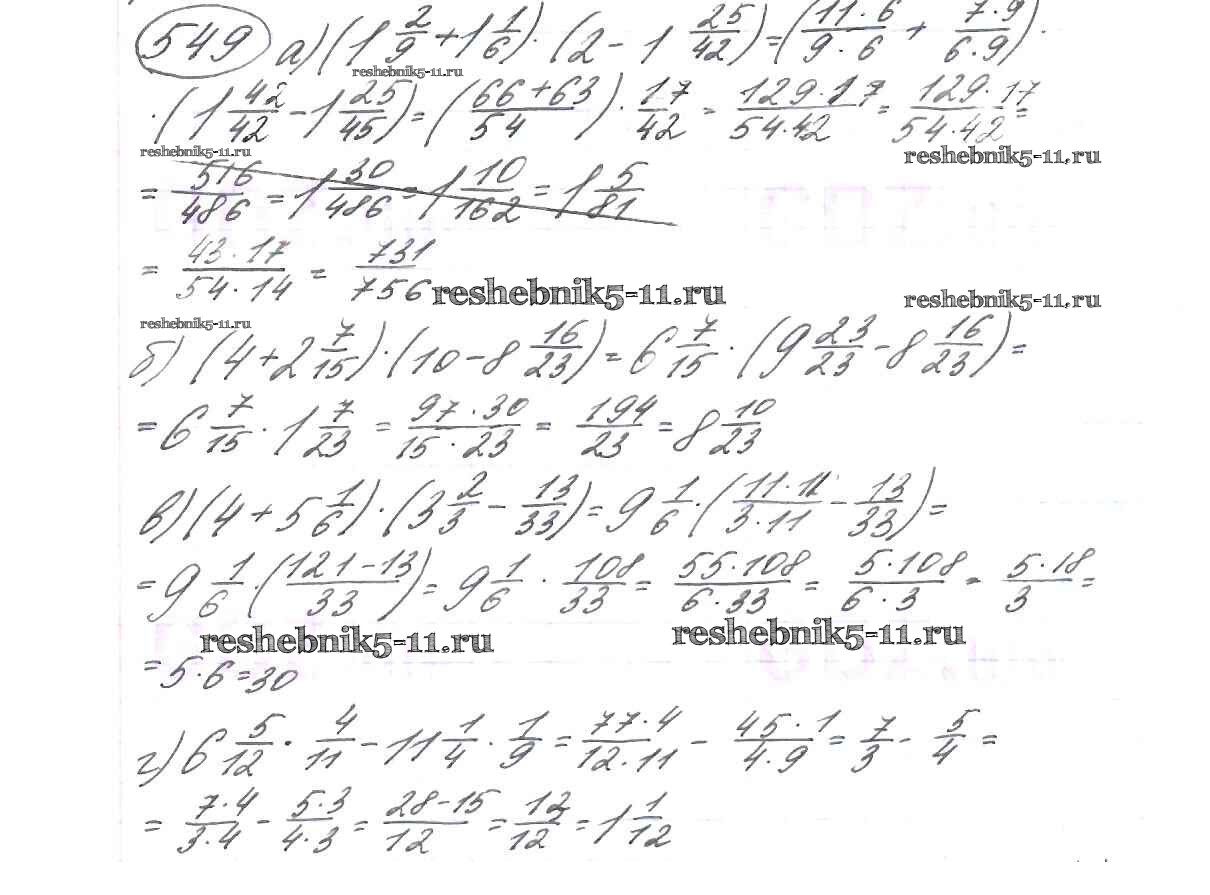 549 а) (1 2/9 + 1 1/6) · (2 - 1 25/42) = (11·6/9·6 + 7·9/6·9) ·
reshebnik5-11.ru
· (1 42/42 - 1 25/45) = (66+63/54) · 17/42 = 129·17/54·42 = 129·17/54·42 =
reshebnik5-11.ru reshebnik5-11.ru
= 516/486 = 1 30/486 = 1 10/162 = 1 5/81
= 43·17/54·14 = 731/756
reshebnik5-11.ru reshebnik5-11.ru
reshebnik5-11.ru
б) (4 + 2 7/15) · (10 - 8 16/23) = 6 7/15 · (9 23/23 - 8 16/23) =
= 6 7/15 · 1 7/23 = 97·30/15·23 = 194/23 = 8 10/23
в) (4 + 5 1/6) · (3 2/3 - 13/33) = 9 1/6 · (11·11/3·11 - 13/33) =
= 9 1/6 · (121-13/33) = 9 1/6 · 108/33 = 55·108/6·33 = 5·108/6·3 = 5·18/3 =
reshebnik5-11.ru reshebnik5-11.ru
= 5·6 = 30
г) 6 5/12 · 4/11 - 11 1/4 · 1/9 = 77·4/12·11 - 45·1/4·9 = 7/3 - 5/4 =
= 7·4/3·4 - 5·3/4·3 = 28-15/12 = 13/12 = 1 1/12